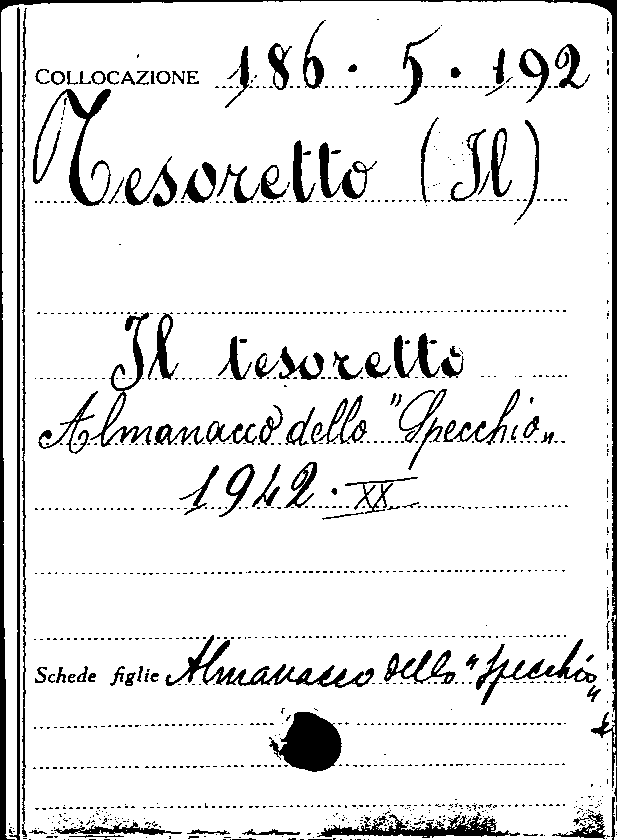 COLLOCAZIONE 186 . 5 . 192
Tesoretto (Il)
Il tesoretto
Almanacco dello "Specchio„
1942 . XX
Schede figlie Almanacco dello "Specchio„